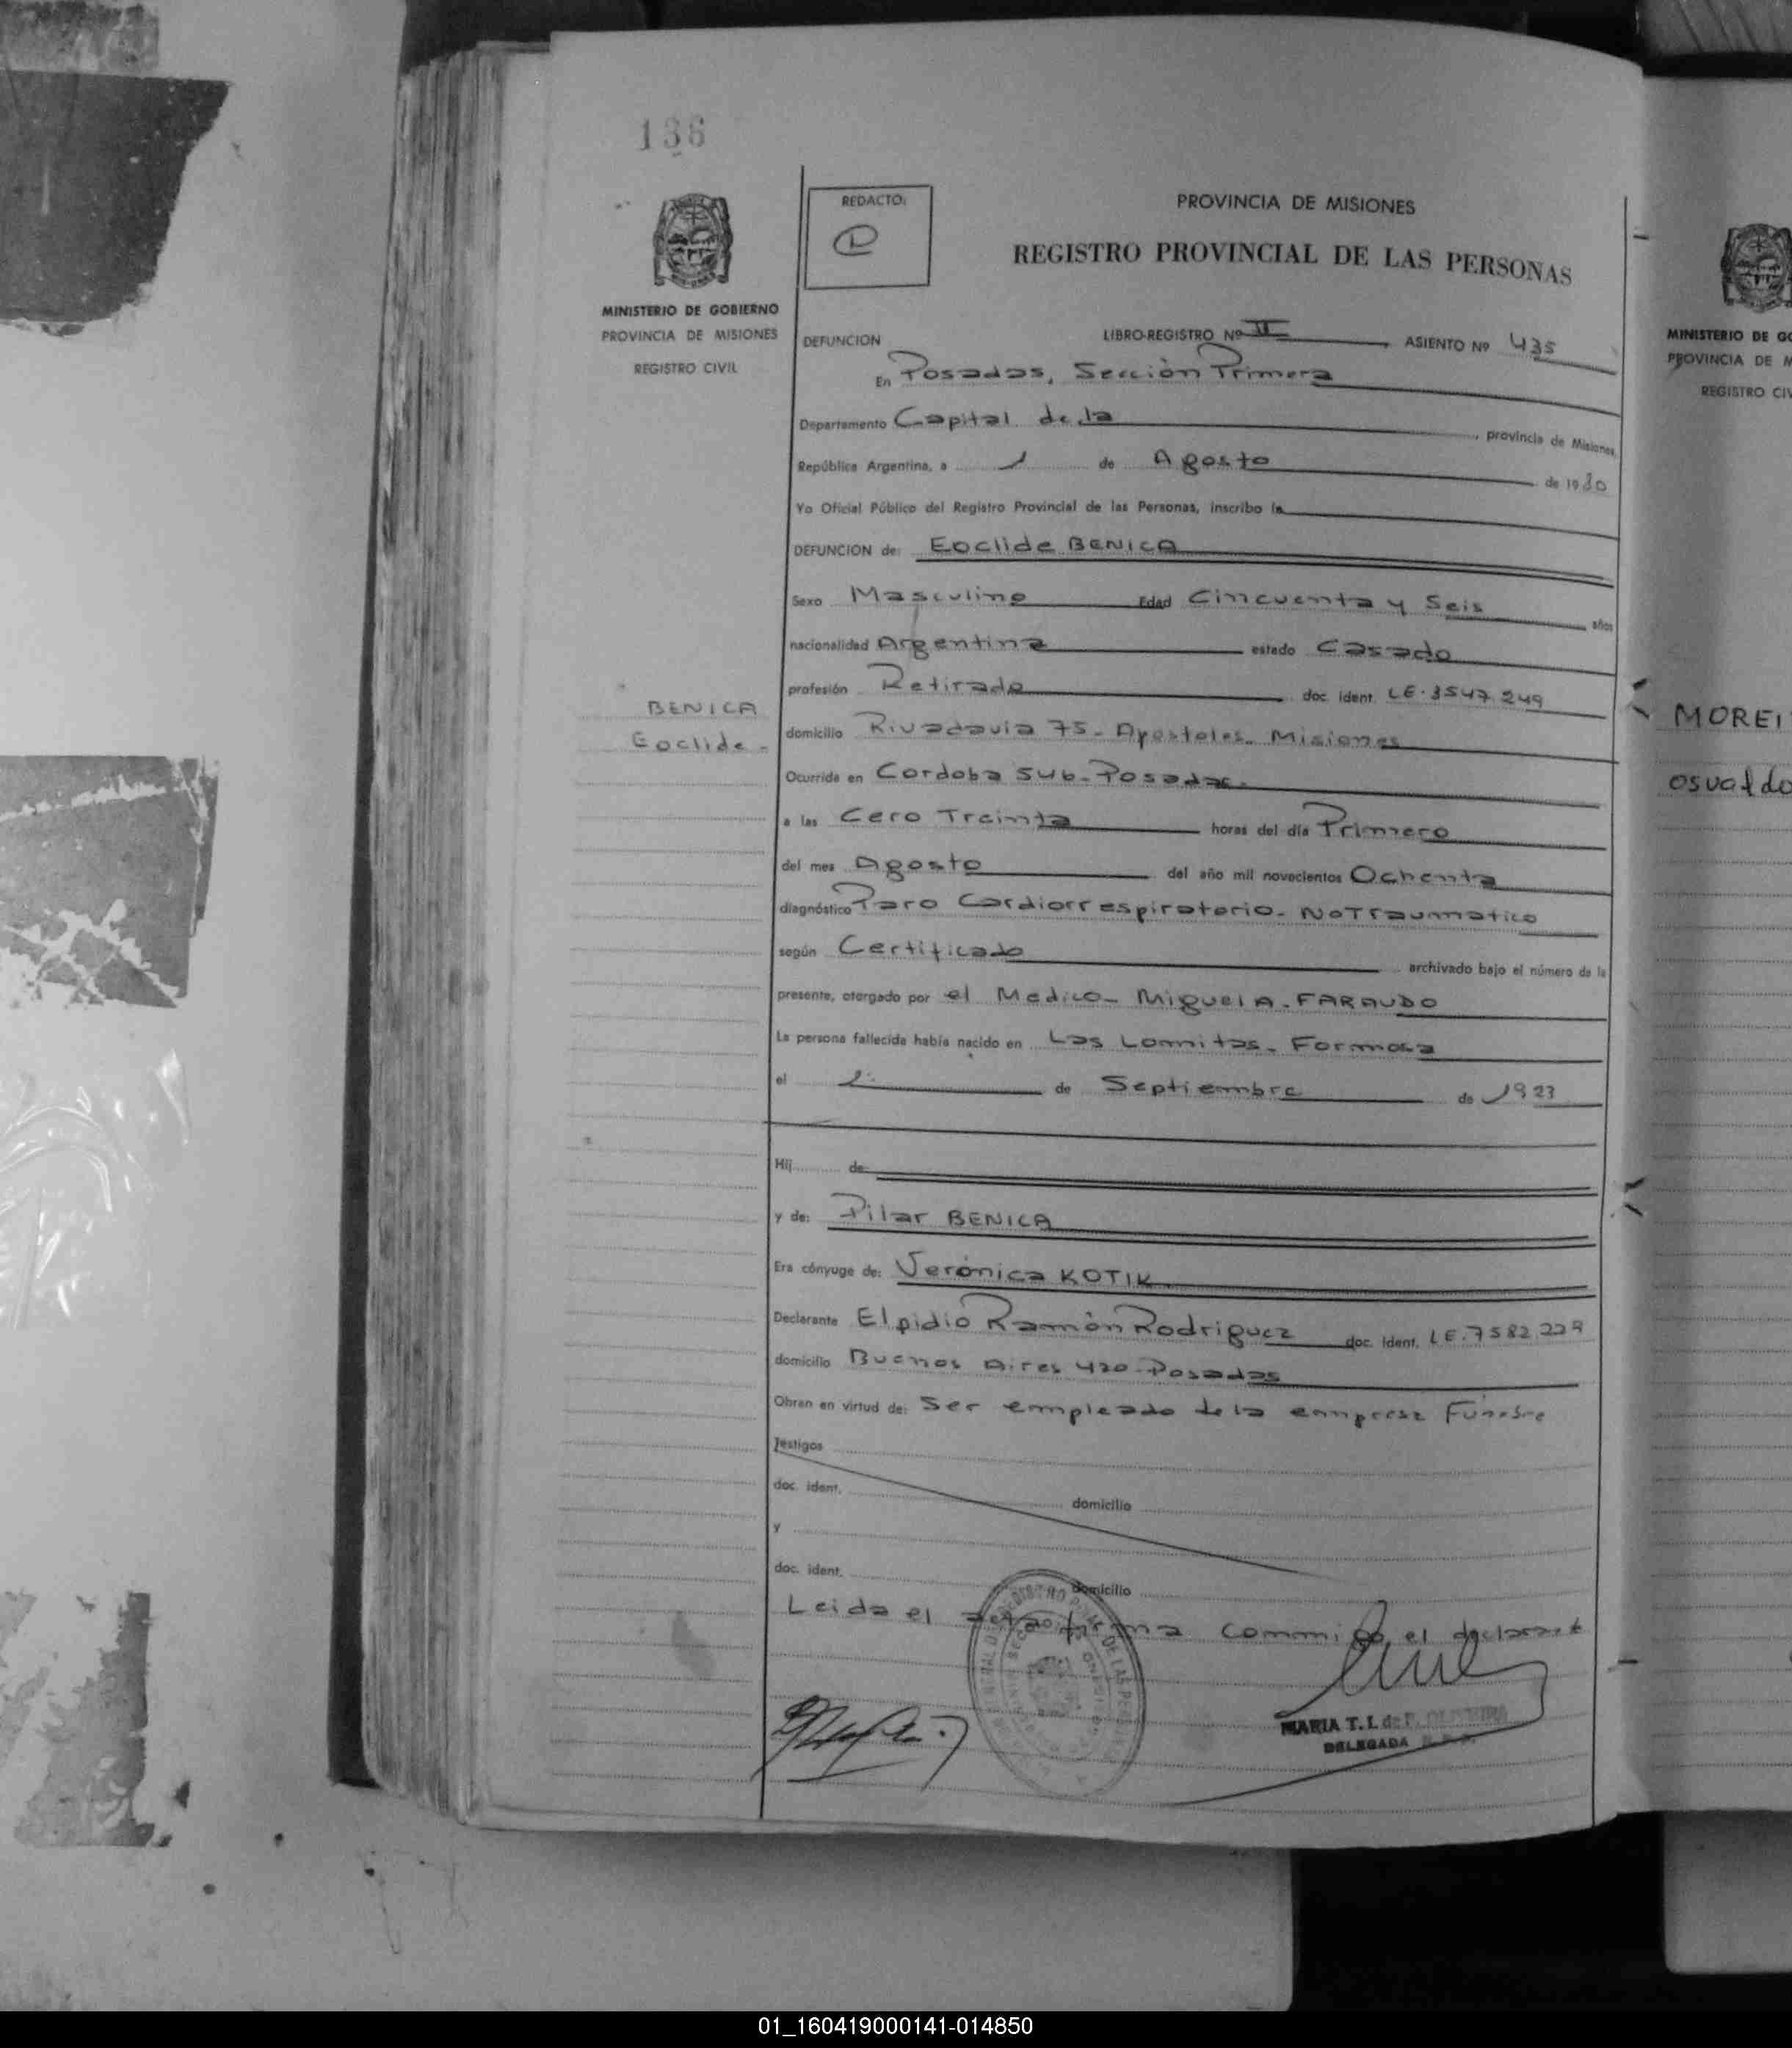 136
REDACTO:
PROVINCIA DE MISIONES
REGISTRO PROVINCIAL DE LAS PERSONAS
MINISTERIO DE GOBIERNO
PROVINCIA DE MISIONES
REGISTRO CIVIL
DEFUNCION LIBRO-REGISTRO Nº II, ASIENTO Nº 435
En Posadas, Sección Primera
Departamento Capital de la, provincia de Misiones,
República Argentina, a 1 de Agosto de 1980
Yo Oficial Público del Registro Provincial de las Personas, inscribo la
DEFUNCION de: Eoclide BENICA
Sexo Masculino Edad Cincuenta y Seis años
nacionalidad Argentina estado Casado
profesión Retirado doc. ident. LE.3547.249
BENICA
Eoclide -
domicilio Rivadavia 75- Apostoles- Misiones
Ocurrida en Cordoba sub- Posadas-
a las Cero Treinta horas del día Primero
del mes Agosto del año mil novecientos Ochenta
diagnóstico Paro Cardiorrespiratorio- No Traumatico
según Certificado archivado bajo el número de la
presente, otorgado por el Medico- Miguel A. FARAUDO
La persona fallecida había nacido en Las Lomitas- Formosa
el de Septiembre de 1923
Hij de:
y de: Pilar BENICA
Era cónyuge de: Verónica KOTIK
Declarante Elpidio Ramón Rodriguez doc. Ident. LE.7582.229
domicilio Buenos Aires 420- Posadas
Obran en virtud de: Ser empleado de la empresa Funebre
Testigos
doc. ident. domicilio
y
doc. ident. domicilio
Leida el acta firma conmigo el declarante
MARIA T. I. de P. OLIVEIRA
DELEGADA
MINISTERIO DE GO
PROVINCIA DE M
REGISTRO CIV
MOREI
osvaldo
01_160419000141-014850